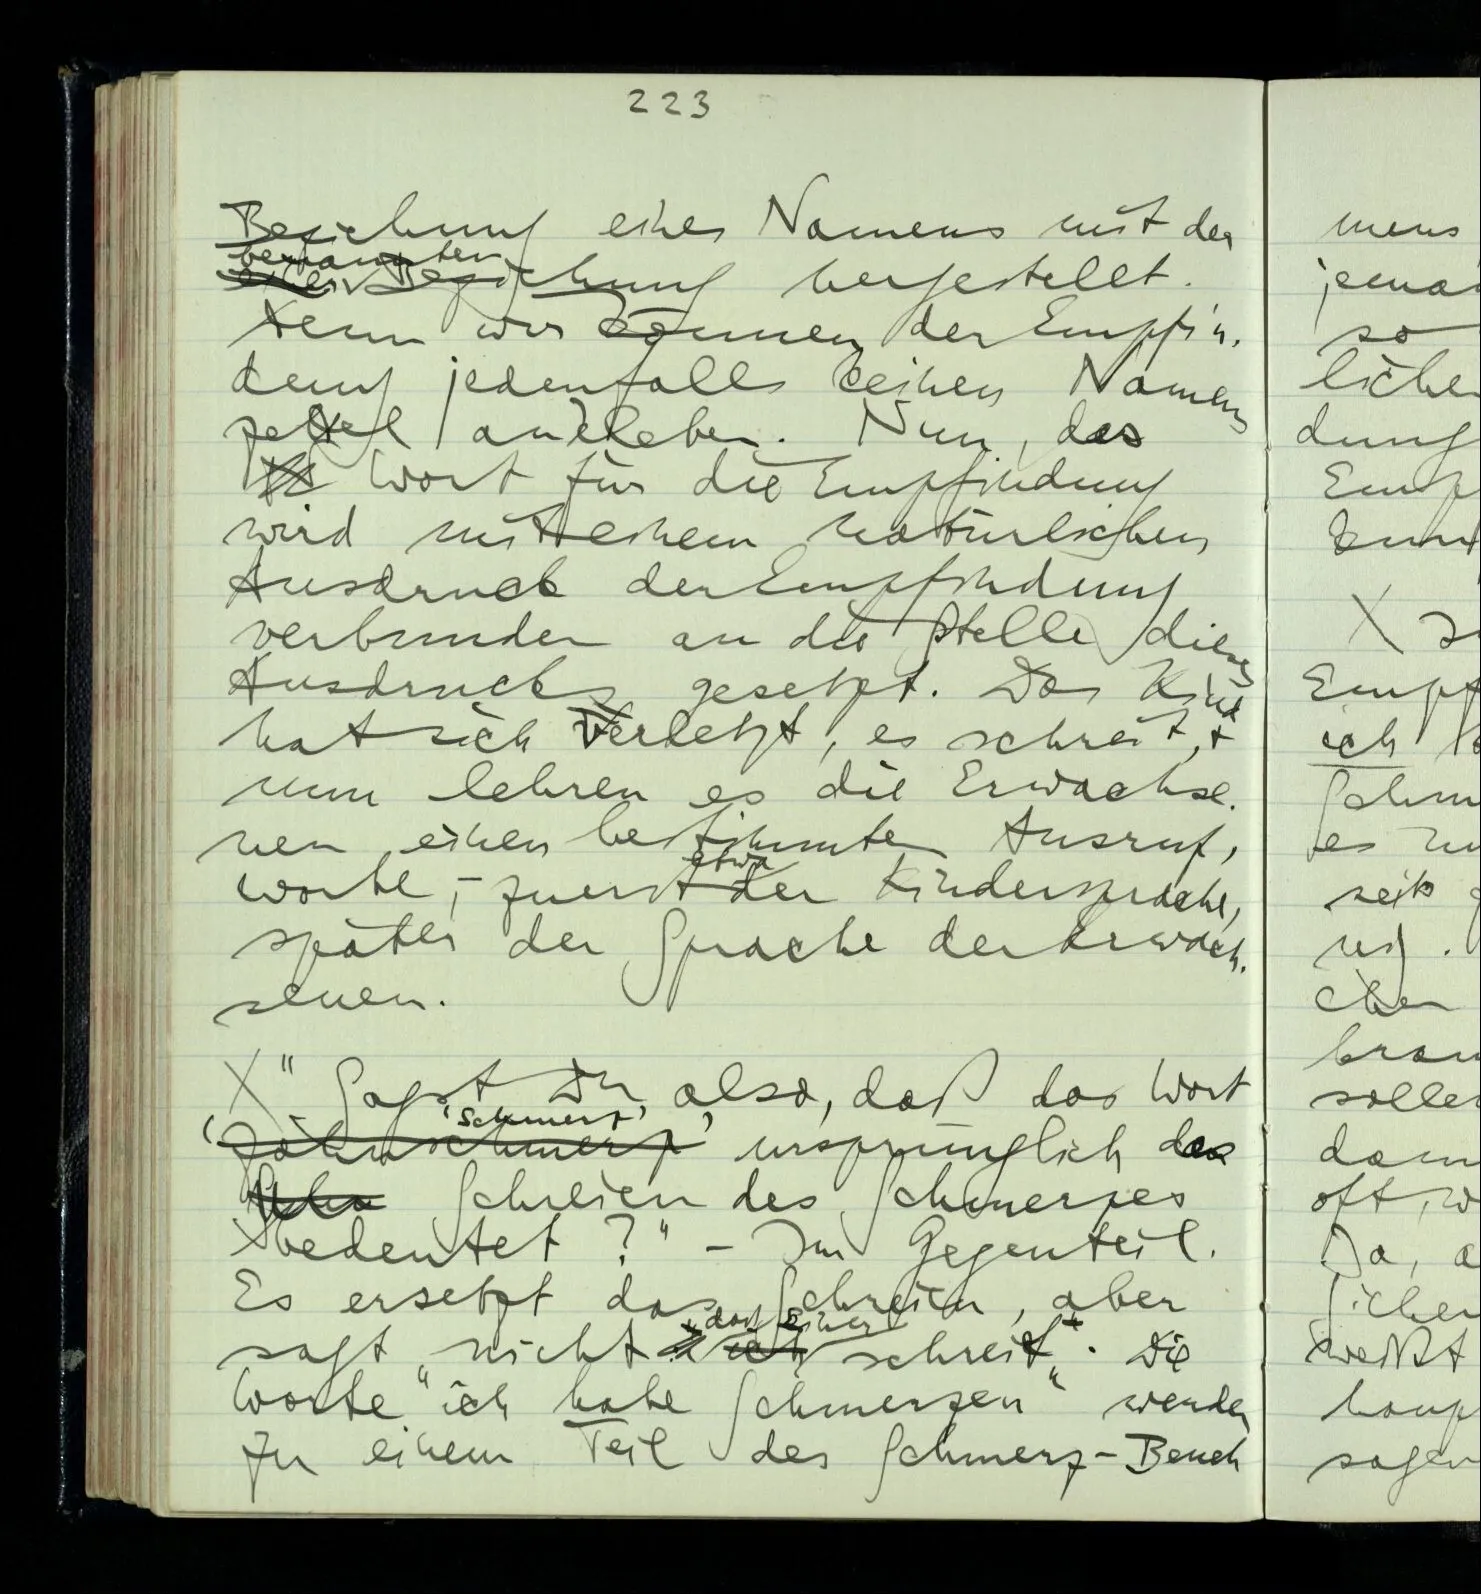 223
Beziehung eines Namens mit der
benannten
einer Beziehung hergestellt.
Denn wir können der Empfin-
dung jedenfalls keinen Namens
zettel ankleben. Nun, das
Wort für die Empfindung
wird mit einem natürlichen
Ausdruck der Empfindung
verbunden an die Stelle dieses
Ausdrucks gesetzt. Das Kind
hat sich verletzt, es schreit, +
nun lehren es die Erwachse-
nen einen bestimmten Ausruf,
etwa
Worte, – zuerst der Kindersprache,
später der Sprache der Erwach-
senen.
X " Sagst Du also, daß das Wort
'Schmerz'
'Zahnschmerz' ursprünglich das
Schreien des Schmerzes
bedeutet?" – Im Gegenteil.
Es ersetzt das Schreien, aber
daß Einer
sagt nicht ich schreit. Die
Worte "ich habe Schmerzen" werden
zu einem Teil des Schmerz-Beneh
mens
so
liche
dung
Emp
X
Empf
ich
es
seits
cher
brau
solle
oft, w
Ja, a
weißt
sagen